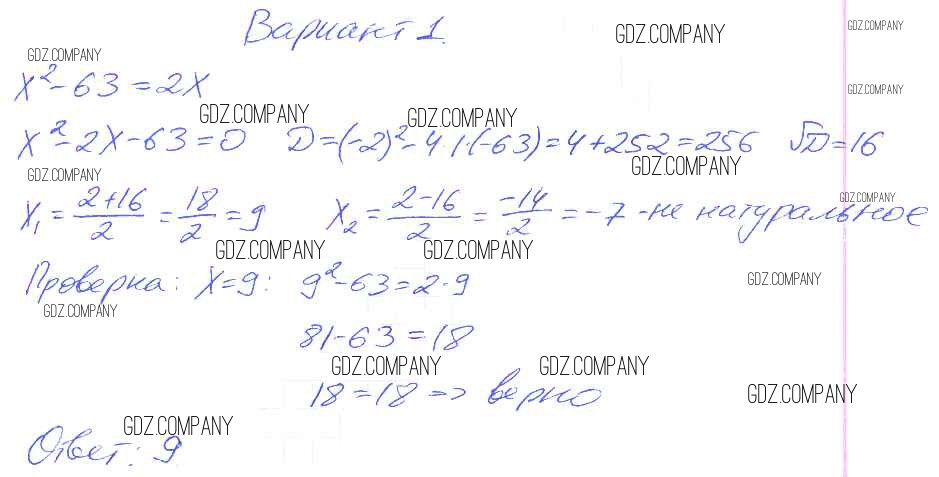 Вариант 1.
GDZ.COMPANY GDZ.COMPANY
GDZ.COMPANY
x² - 63 = 2x
GDZ.COMPANY
GDZ.COMPANY GDZ.COMPANY
x² - 2x - 63 = 0 D = (-2)² - 4·1·(-63) = 4 + 252 = 256 √D = 16
GDZ.COMPANY GDZ.COMPANY
x₁ = (2+16)/2 = 18/2 = 9 x₂ = (2-16)/2 = -14/2 = -7 - не натуральное
GDZ.COMPANY
GDZ.COMPANY GDZ.COMPANY
Проверка: x = 9: 9² - 63 = 2·9
GDZ.COMPANY
GDZ.COMPANY
81 - 63 = 18
GDZ.COMPANY GDZ.COMPANY
18 = 18 => верно
GDZ.COMPANY
GDZ.COMPANY
Ответ: 9